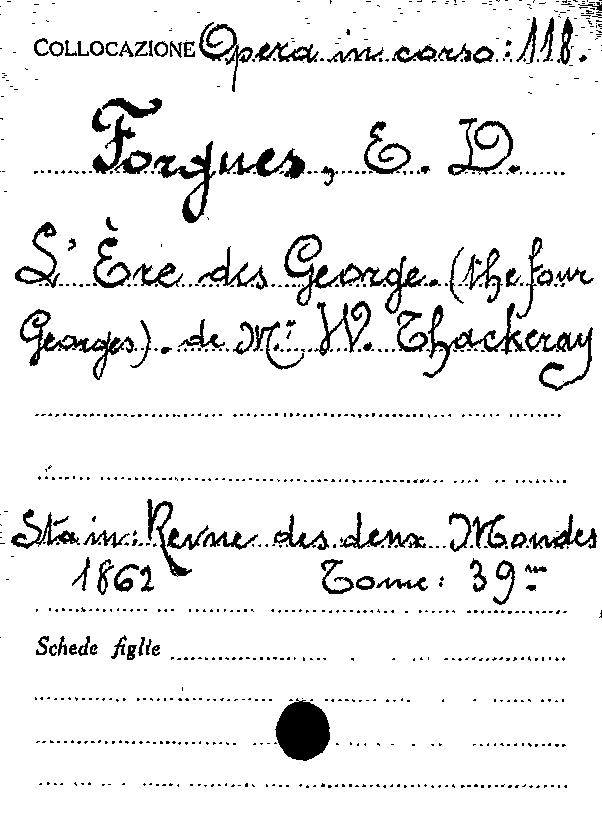 COLLOCAZIONE Opera in corso: 118.
Forgues, E. D.
L'Ère des George. (the four
Georges). de M.r W. Thackeray
Sta in: Revue des deux Mondes
1862 Tome: 39me
Schede figlie